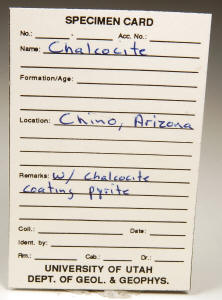 SPECIMEN CARD
No.: - Acc. No.:
Name: Chalcocite
Formation/Age:
Location: Chino, Arizona
Remarks: W/ Chalcocite
coating pyrite
Coll.: Date:
Ident. by:
Rm.: Cab.: Dr.:
UNIVERSITY OF UTAH
DEPT. OF GEOL. & GEOPHYS.